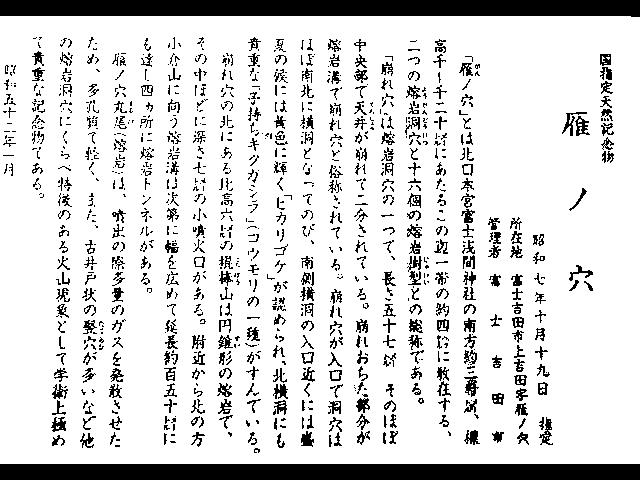 国指定天然記念物
雁ノ穴
昭和七年十月十九日 指定
所在地 富士吉田市上吉田字雁ノ穴
管理者 富士吉田市
「雁ノ穴」とは北口本宮富士浅間神社の南方約三粁、標
高千〜千二十米にあたるこの辺一帯の約四粁に散在する、
二つの熔岩洞穴と十六個の熔岩樹型との総称である。
「崩れ穴」は熔岩洞穴の一つで、長さ五十七米 そのほぼ
中央部で天井が崩れて二分されている。崩れおちた部分が
熔岩溝で崩れ穴と俗称されている。崩れ穴が入口で洞穴は
ほぼ南北に横洞となってのび、南側横洞の入口近くには盛
夏の候には黄色に輝く「ヒカリゴケ」が認められ、北横洞にも
貴重な「子持ちキクガシラ」(コウモリの一種)がすんでいる。
崩れ穴の北にある比高六米の 山は円錐形の熔岩で、
その中ほどに深さ七米の小噴火口がある。附近から北の方
小倉山に向う熔岩溝は次第に幅を広めて延長約百五十米に
も達し四ヵ所に熔岩トンネルがある。
雁ノ穴丸尾(熔岩)は、噴出の際多量のガスを発散させた
ため、多孔質で軽く、また、古井戸状の竪穴が多いなど他
の熔岩洞穴にくらべ特徴のある火山現象として学術上極め
て貴重な記念物である。
昭和五十二年一月